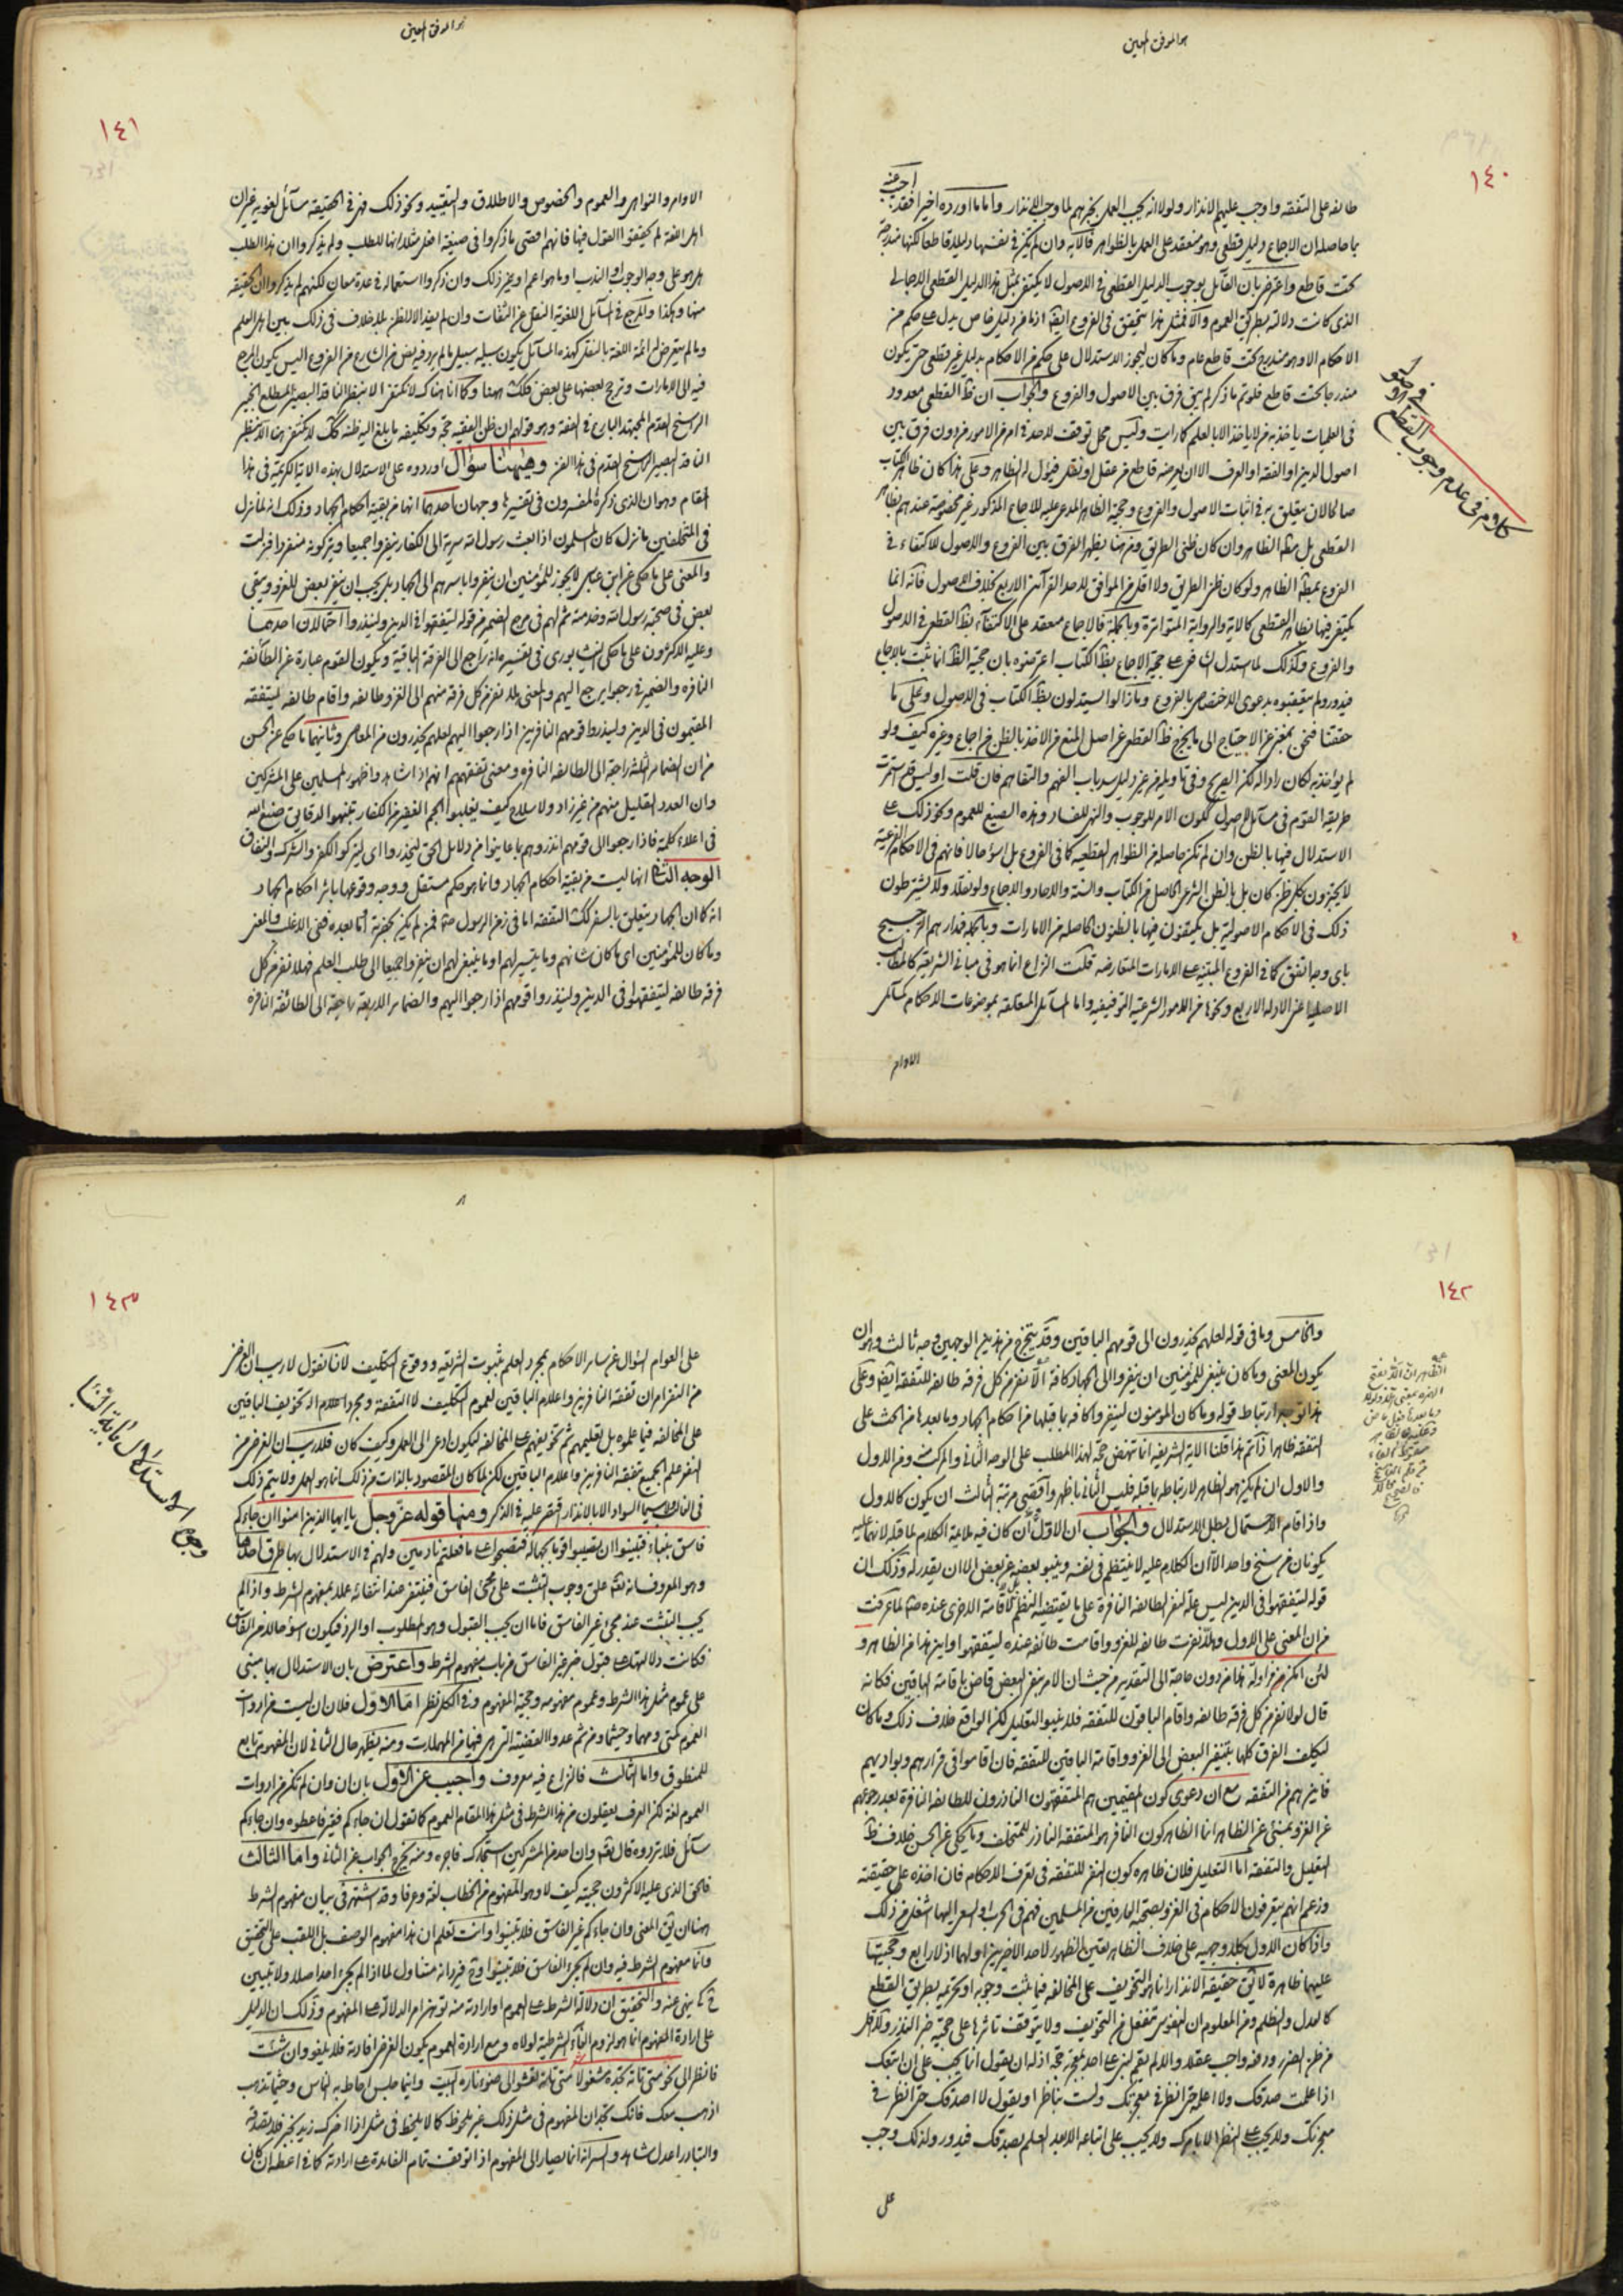 هو الموفق المعين
١٤٠
طائفة على التفقه واوجب عليهم الانذار ولولا انه يجب العمل بخبرهم لما وجب الانذار واما ما اورده اخيرا فقد
اجيب عنه
بما حاصله ان الاجماع دليل قطعي وهو منعقد على العمل بالظواهر فالآية وان لم يكن في نفسها دليلا قاطعا لكنها مندرجة
تحت قاطع واعترض بان القائل بوجوب الدليل القطعي في الاصول لا يكتفي بمثل هذا الدليل القطعي الاجمالي
الذي كانت دلالته بطريق العموم والا فمثل هذا يتحقق في الفروع ايضا اذ ما من دليل خاص يدل على حكم من
الاحكام الا وهو مندرج تحت قاطع عام وما كان ليجوز الاستدلال على حكم من الاحكام بدليل غير قطعي حتى يكون
مندرجا تحت قاطع فلو تم ما ذكر لم يبق فرق بين الاصول والفروع والجواب ان ظ القطعي معدود
في العلميات ياخذ به من لا ياخذ الا بالعلم كما رايت وليس محل توقف لاحد في امر من الامور من دون فرق بين
اصول الدين او الفقه او العرف الا ان يعرضه قاطع من عقل او نقل فيؤل له الظاهر وعلى هذا كان ظاهر الكتاب
صالحا لان يتعلق به في اثبات الاصول والفروع وحجية الظاهر المدعى عليه الاجماع المذكور غير مخصوصة عندهم بظاهر
القطعي بل مطلق الظاهر وان كان ظني الطريق ومن هنا يظهر الفرق بين الفروع والاصول للاكتفاء في
الفروع بمطلق الظاهر ولو كان ظني الطريق ولا اقل من الموافق لاحد القرآئن الاربع بخلاف الاصول فانه انما
يكتفى فيها بظاهر القطعي كالآية والرواية المتواترة وبالجملة فالاجماع منعقد على الاكتفآء بظ القطعي في الاصول
والفروع وكذلك لما استدل الشافعي على حجية الاجماع بظ الكتاب اعترضوه بان حجية الظ انما ثبت بالاجماع
فيدور ولم يتعقبوه بدعوى الاختصاص بالفروع وما زالوا يستدلون بظ الكتاب في الاصول وعلى ما
حققنا فنحن بمغن عن الاحتياج الى ما يخرج ظ القطعي عن اصل المنع من الاخذ بالظن من اجماع وغيره كيف ولو
لم يؤاخذ به لكان رادا له لكن الصريح وفي تاويله من غير دليل سد باب الفهم والتفاهم فان قلت اوليس قد استمرت
طريقة القوم في مسآئل الاصول ككون الامر للوجوب والنهي للفساد وهذه الصيغ للعموم ونحو ذلك على
الاستدلال فيها بالظن وان لم تكن حاصلة من الظواهر القطعيه كما في الفروع بل اسؤ حالا فانهم في الاحكام الفرعية
لا يجتزون بكل ظن كان بل بالظن الشرعي الحاصل من الكتاب والسنة والاخبار والاجماع ولو نقلا ولا يشترطون
ذلك في الاحكام الاصولية بل يكتفون فيها بالظنون الحاصلة من الامارات وبالجملة فمدارهم الترجيح
باي وجه اتفق كما في الفروع المبنية على الامارات المتعارضه قلت النزاع انما هو في مباني الشريعة كالمطالب
الاصلية اعني الادلة الاربع ونحوها من الامور الشرعية التوقيفيه واما المسآئل المتعلقة بموضوعات الاحكام كمسآئل
الاوامر
كلام في عدم وجوب القطع
في الاصول
هو الموفق المعين
١٤١
الاوامر والنواهي والعموم والخصوص والاطلاق والتقييد ونحو ذلك فهي في الحقيقه مسآئل لغويه غير ان
اهل اللغة لم يحققوا القول فيها فانهم اقصى ما ذكروا في صيغة افعل مثلا انها للطلب ولم يذكروا ان هذا الطلب
هل هو على وجه الوجوب او الندب او ما هو اعم او غير ذلك وان ذكروا استعماله في عدة معان لكنهم لم يذكروا ان الحقيقه
منها وهكذا والمرجع في المسآئل اللغوية النقل عن الثقات وان لم يفد الا الظن بلا خلاف في ذلك بين اهل العلم
وما لم يتعرض له ائمة اللغة بالنقل كهذه المسآئل يكون سبيله سبيل ما لم يرد فيه نص من الشارع من الفروع اليس يكون المرجع
فيه الى الامارات وترجيح بعضها على بعض فكذلك ههنا وكما انا هناك لا نكتفي الا بنظر الناقد البصير المطلع الخبير
الراسخ القدم المجتهد البارع في الفقه وهو قولهم ان ظن الفقيه حجة وتكليفه ما بلغ اليه ظنه كك لا نكتفي هنا الا بنظر
الناقد البصير الراسخ القدم في هذا الفن وهيهنا سؤال اوردوه على الاستدلال بهذه الاية الكريمة في هذا
المقام وهو ان الذي ذكره المفسرون في تفسيرها وجهان احدهما انها من بقية احكام الجهاد وذلك انه لما نزل
في المتخلفين ما نزل كان المسلمون اذا بعث رسول الله سرية الى الكفار ينفرو جميعا ويتركونه منفردا فنزلت
والمعنى على ما حكي عن ابن عباس لا يجوز للمؤمنين ان ينفروا باسرهم الى الجهاد بل يجب ان ينفر بعض للغزو ويبقى
بعض في صحبة رسول الله وخدمته ثم لهم في مرجع الضمير من قوله ليتفقهوا في الدين ولينذروا احتمالان احدهما
وعليه الاكثرون على ما حكى النيشابوري في تفسيره انه راجع الى الفرقة الباقية ويكون القوم عبارة عن الطائفه
النافره والضمير في رجعوا يرجع اليهم والمعنى هلا نفر من كل فرقة منهم الى الغزو طائفه واقام طائفه ليتفقه
المقيمون في الدين ولينذروا قومهم النافرين اذا رجعوا اليهم لعلهم يحذرون من المعاصي وثانيهما ما حكي عن الحسن
من ان الضماير الثلثة راجعة الى الطائفه النافره ومعنى تفقههم انهم اذا شاهدوا ظهور المسلمين على المشركين
وان العدد القليل منهم من غير زاد ولا سلاح كيف يغلبوا الجم الغفير من الكفار تنبهوا لدقايق صنع الله
في اعلاء كلمته فاذا رجعوا الى قومهم انذروهم بما عاينوا من دلايل الحق ليحذروا اي ليتركوا الكفر والشرك والنفاق
الوجه الثاني انها ليست من بقية احكام الجهاد وانما هو حكم مستقل ووجه وقوعها باثر احكام الجهاد
انه كما ان الجهاد يتعلق بالسفر كك التفقه اما في زمن الرسول صم فمن لم يكن بحضرته واما بعده ففي الاغلب والمعنى
وما كان للمؤمنين اي ما كان شانهم وما يتيسر لهم او ما ينبغي لهم ان ينفروا جميعا الى طلب العلم فهلا نفر من كل
فرقة طائفه ليتفقهوا في الدين ولينذروا قومهم اذا رجعوا اليهم والضماير الاربعة راجعة الى الطائفة النافرة
١٤٢
والخامس وما في قوله لعلهم يحذرون الى قومهم الباقين وقد يتخرج من هذين الوجهين وجه ثالث وهو ان
يكون المعنى وما كان ينبغي للمؤمنين ان ينفروا الى الجهاد كافة الا نفر من كل فرقة طائفه للتفقه ايضا وعلى
هذا توجه ارتباط قوله وما كان المؤمنون لينفروا كافه بما قبلها من احكام الجهاد وما بعدها من الحث على
التفقه ظاهرا اذا تم هذا قلنا الآية الشريفه انما تنهض حجة لهذا المطلب على الوجه الثاني والمركب منه ومن الاول
والاول ان لم يكن هو الظاهر لارتباطه بما قبله فليس الثاني باظهر واقصى مرتبة الثالث ان يكون كالاول
واذا قام الاحتمال بطل الاستدلال والجواب ان الاول وان كان فيه ملايمة الكلام لما قبله لانهما عليه
يكونان من سنخ واحد الا ان الكلام عليه لا ينتظم في نفسه وينبو بعضه عن بعض الا ان يقدر له وذلك ان
قوله ليتفقهوا في الدين ليس علة لنفر الطائفه النافرة على ما يقتضيه النظم بل لاقامة الاخرى عنده صم لما عرفت
من ان المعنى على الاول وهلا نفرت طائفه للغزو واقامت طائفه عنده ليتفقهوا واين هذا من الظاهر و
لئن امكن من اوله هذا من دون حاجة الى التقدير من حيث ان الامر بنفر البعض قاض باقامة الباقين فكانه
قال لولا نفر من كل فرقة طائفه واقام الباقون للتفقه فلا ينبو التعليل لكن الواقع خلاف ذلك وما كان
ليكلف الفرق كلها بتنفير البعض الى الغزو واقامة الباقين للتفقه فان اقاموا في قرارهم وبواديهم
فاين هم من التفقه مع ان دعوى كون المقيمين هم المتفقهون الناذرون للطائفه النافرة بعد رجوعهم
عن الغزو بمنئى عن الظاهر انما الظاهر كون النافر هو المتفقه الناذر للمتخلف وما يحكى عن الحسن خلاف ظ
التعليل والتفقه اما التعليل فلان ظاهره كون النفر للتفقه في تعرف الاحكام فان اخذه على حقيقته
وزعم انهم يتعرفون الاحكام في الغزو بصحبة العارفين من المسلمين فهم في الحرب والسعي اليها اشغل من ذلك
واذا كان الاول بكلا وجهيه على خلاف الظاهر تعين الظهور لاحد الاخيرين او لهما اذ لا رابع وحجيتها
عليهما ظاهرة لا يق حقيقة الانذار انما هو التخويف على المخالفه فيما ثبت وجوبه او تحريمه بطريق القطع
كالعدل والظلم ومن المعلوم ان النفوس تنفعل من التخويف ولا يتوقف تاثرها على حجية خبر المنذر ولا اقل
من ظن الضرر ودفعه واجب عقلا والا لم يقم لنبي على احد بمعجزته حجة اذ له ان يقول انما يجب علي ان اتبعك
اذا علمت صدقك ولا اعلمه حتى انظر في معجزتك ولست بناظر او يقول لا اصدقك حتى انظر في
معجزتك ولا يجب علي النظر الا بامرك ولا يجب علي اتباعه الا بعد العلم بصدقك فيدور ولذلك وجب
على
١٤٣
على العوام السؤال عن ساير الاحكام بمجرد العلم بثبوت الشريعه ووقوع التكليف لانا نقول لا ريب ان الغرض
من النفر امران تفقه النافرين واعلام الباقين لعموم التكليف لا التفقه ومجرد التخويف الباقين
على المخالفه فيما علموه بل تعليمهم ثم تخويفهم على المخالفه ليكون ادعى الى العمل وكيف كان فلا ريب ان الغرض من
النفر علم الجميع تفقه النافرين واعلام الباقين لكن لما كان المقصود بالذات من ذلك انما هو العمل ولا يتم ذلك
في الناس لا سيما السواد الا بالانذار اقتصر عليه في الذكر ومنها قوله عز وجل يا ايها الذين امنوا ان جاءكم
فاسق بنباء فتبينوا ان تصيبوا قوما بجهالة فتصبحوا على ما فعلتم نادمين ولهم في الاستدلال بها طرق احدها
وهو المعروف انه تع علق وجوب التثبت على مجئ الفاسق فينتفي عند انتفائه عملا بمفهوم الشرط واذا لم
يجب التثبت عند مجئ غير الفاسق فاما ان يجب القبول وهو المطلوب او الرد فيكون اسؤ حالا من الفاسق
فكانت دلالتها على قبول خبر غير الفاسق من باب مفهوم الشرط واعترض بان الاستدلال بها مبني
على عموم مثل هذا الشرط وعموم مفهومه وحجية المفهوم وفي الكل نظر اما الاول فلان ان ليست من ادوات
العموم كمتى ومهما وحيثما ومن ثم عدوا القضية التي هي فيها من المهملات ومنه يظهر حال الثاني لان المفهوم تابع
للمنطوق واما الثالث فالنزاع فيه معروف واجيب عن الاول بان ان وان لم تكن من ادوات
العموم لغة لكن العرف يعقلون من هذا الشرط في مثل هذا المقام العموم كما تقول ان جاءكم فقير فاعطوه وان جاءكم
سآئل فلا تردوه قال تع وان احد من المشركين استجارك فاجره ومنه يخرج الجواب عن الثاني واما الثالث
فالحق الذي عليه الاكثرون حجيته كيف لا وهو المفهوم من الخطاب لغة وعرفا وقد اشتهر في بيان مفهوم الشرط
ههنا ان يق المعنى وان جاءكم غير الفاسق فلا تبينوا وانت تعلم ان هذا مفهوم الوصف بل اللقب على التحقيق
وانما مفهوم الشرط فيه وان لم يجئ الفاسق فلا تبينوا وح فيرد انه متناول لما اذا لم يجئ احد اصلا ولا تبين
ح كي ينهى عنه والتحقيق ان دلالة الشرط على العموم او ارادته منه لا توجب انهم الدلالة على المفهوم وذلك ان الدليل
على ارادة المفهوم انما هو لزوم الغآء الشرطية لولاه ومع ارادة العموم يكون الغرض افادته فلا يلغو وان شئت
فانظر الى نحو متى تاته تجده مشغولا متى تاته تعشو الى ضوء ناره البيت واينما جلس احاط به الناس وحيثما تذهب
اذهب معك فانك تجد ان المفهوم في مثل ذلك غير ملحوظ كما لا يلحظ في مثل اذا اخبرك زيد بخبر فلا تصدقه
والتبادر اعدل شاهد والسر انه انما يصار الى المفهوم اذا توقفت تمام الفايدة على ارادته كما في اعطه ان كان
وجوه الاستدلال باية النبأ